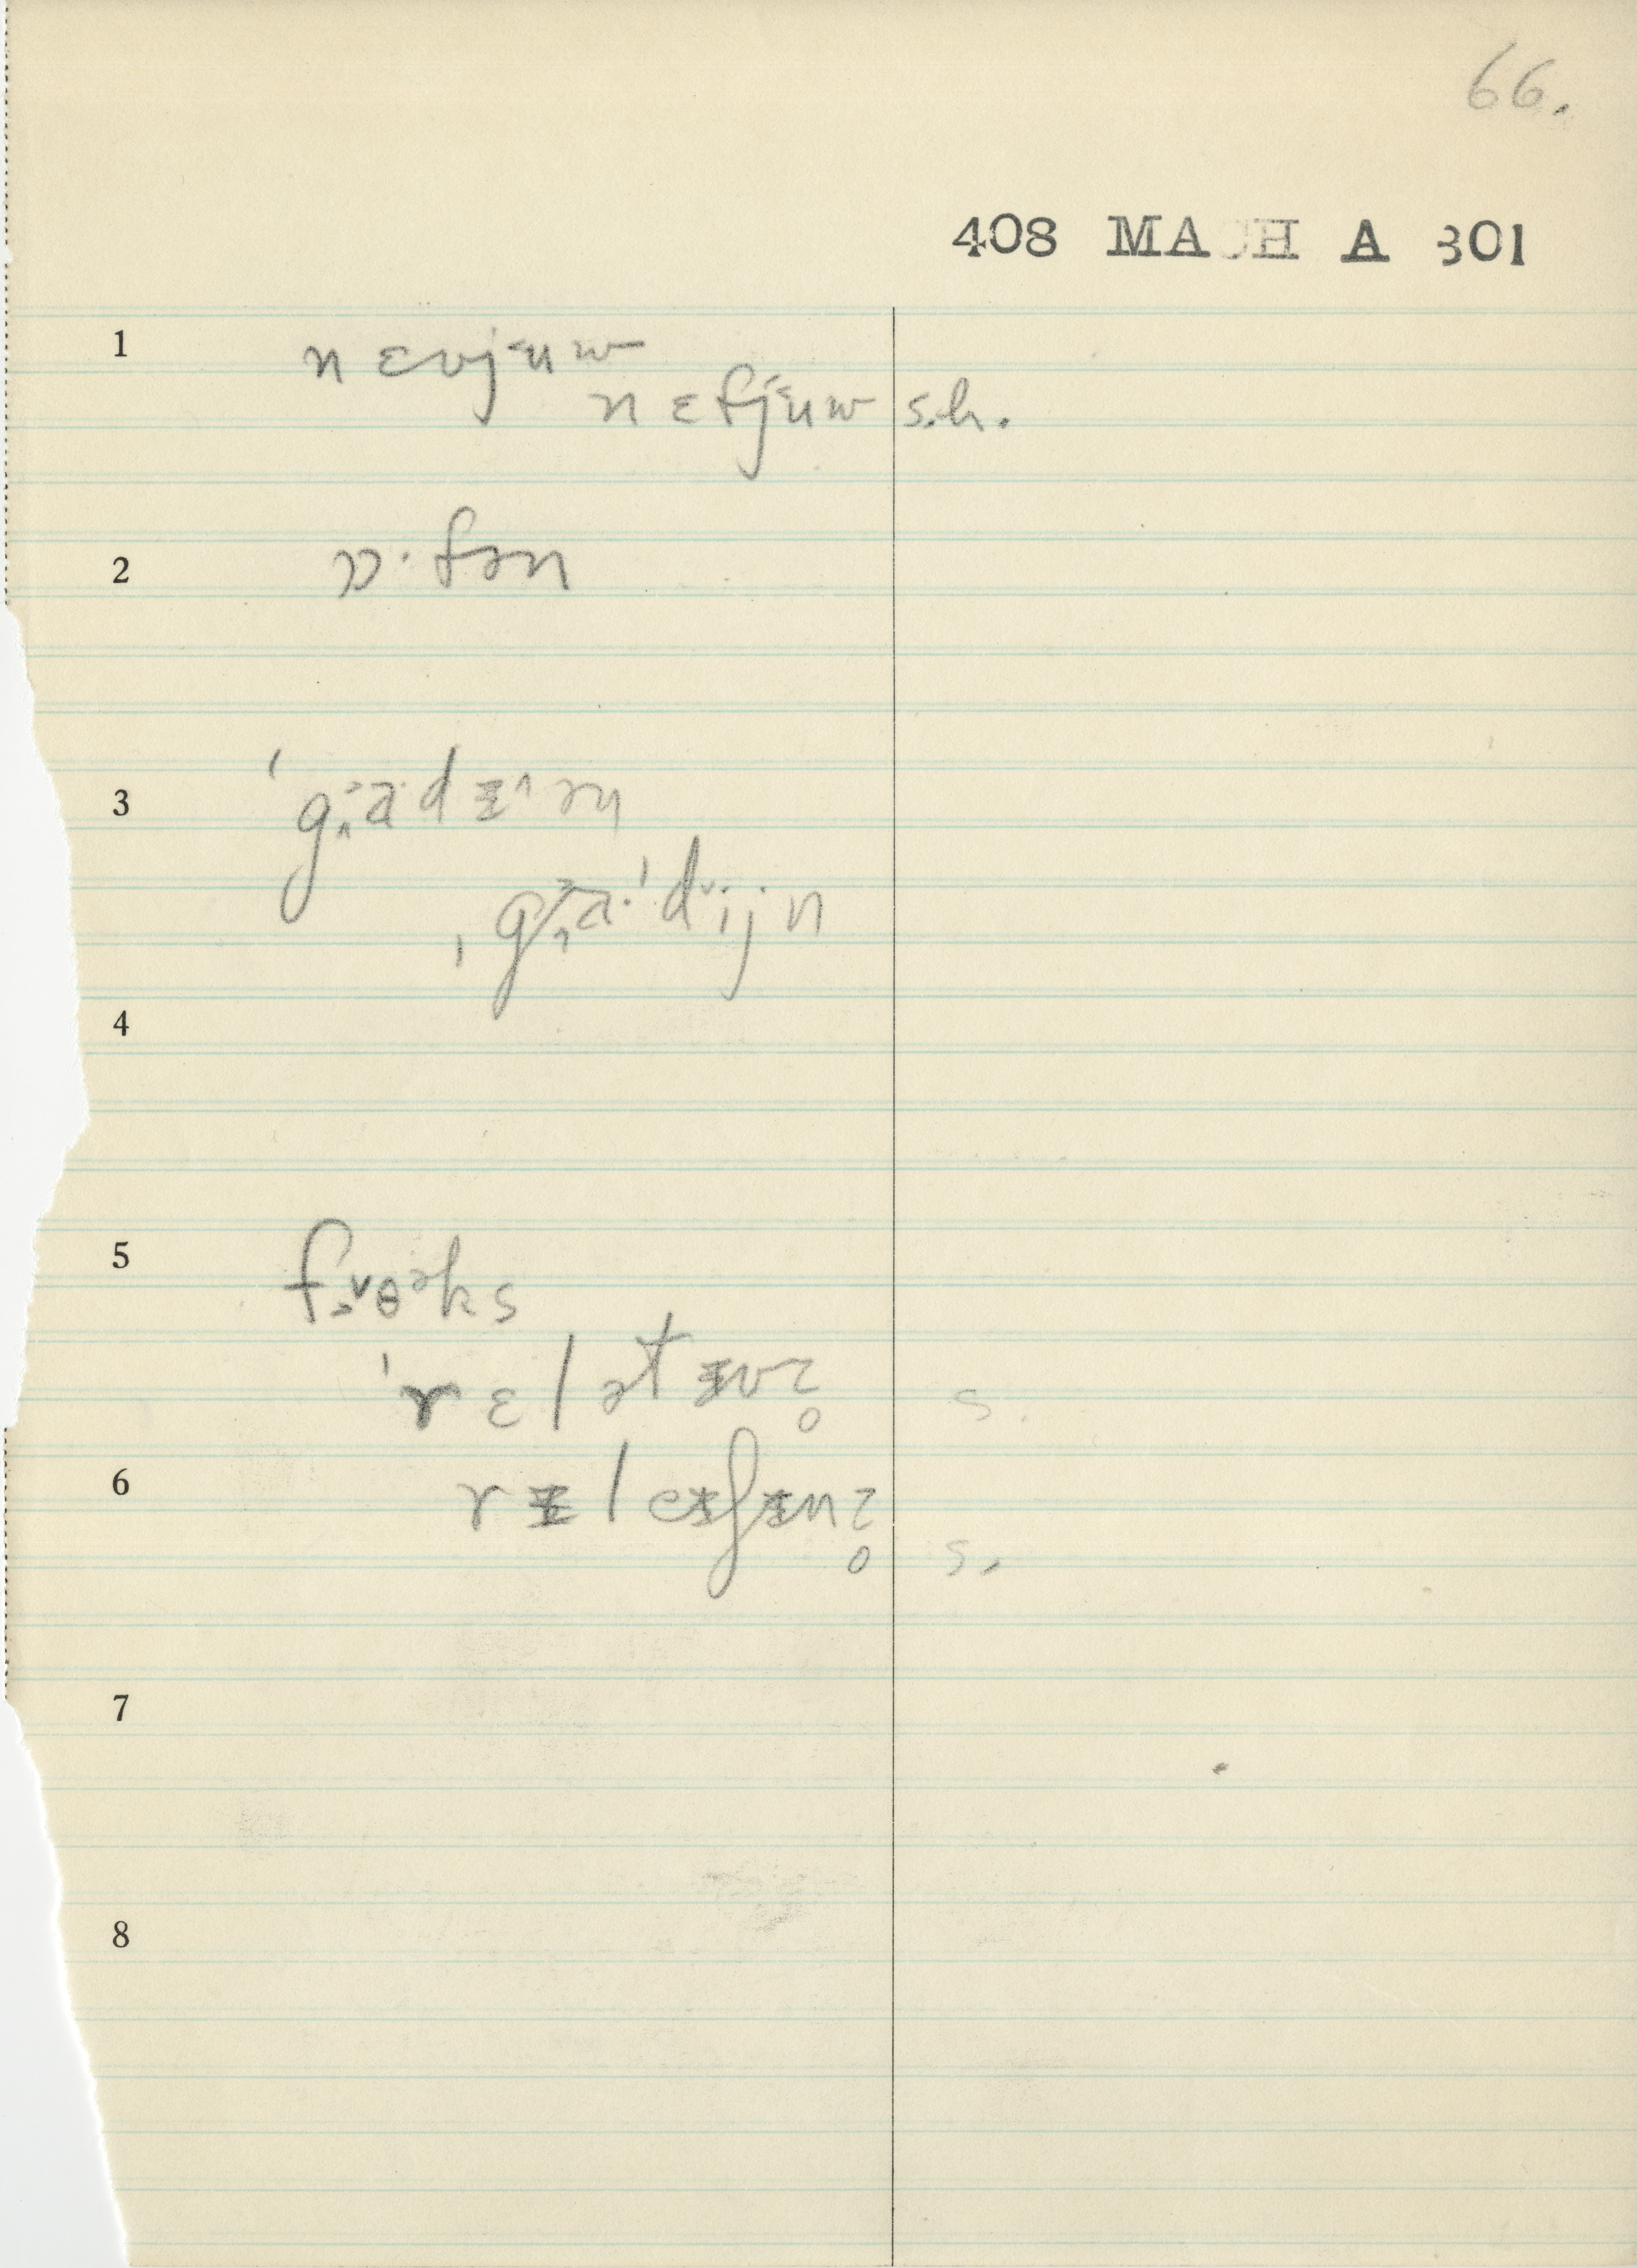 66.
408 MACH A 301
1 nɛvjᵋuw
nɛfjᵋuw s.h.
2 ɒ·fən
3 ˈgaˑdɪən
ˌgaˑˈdijn
4
5 fɵəks
ˈrɛlətɪvz̥ s.
6 rɪleɪʃɪnz̥ s.
7
8